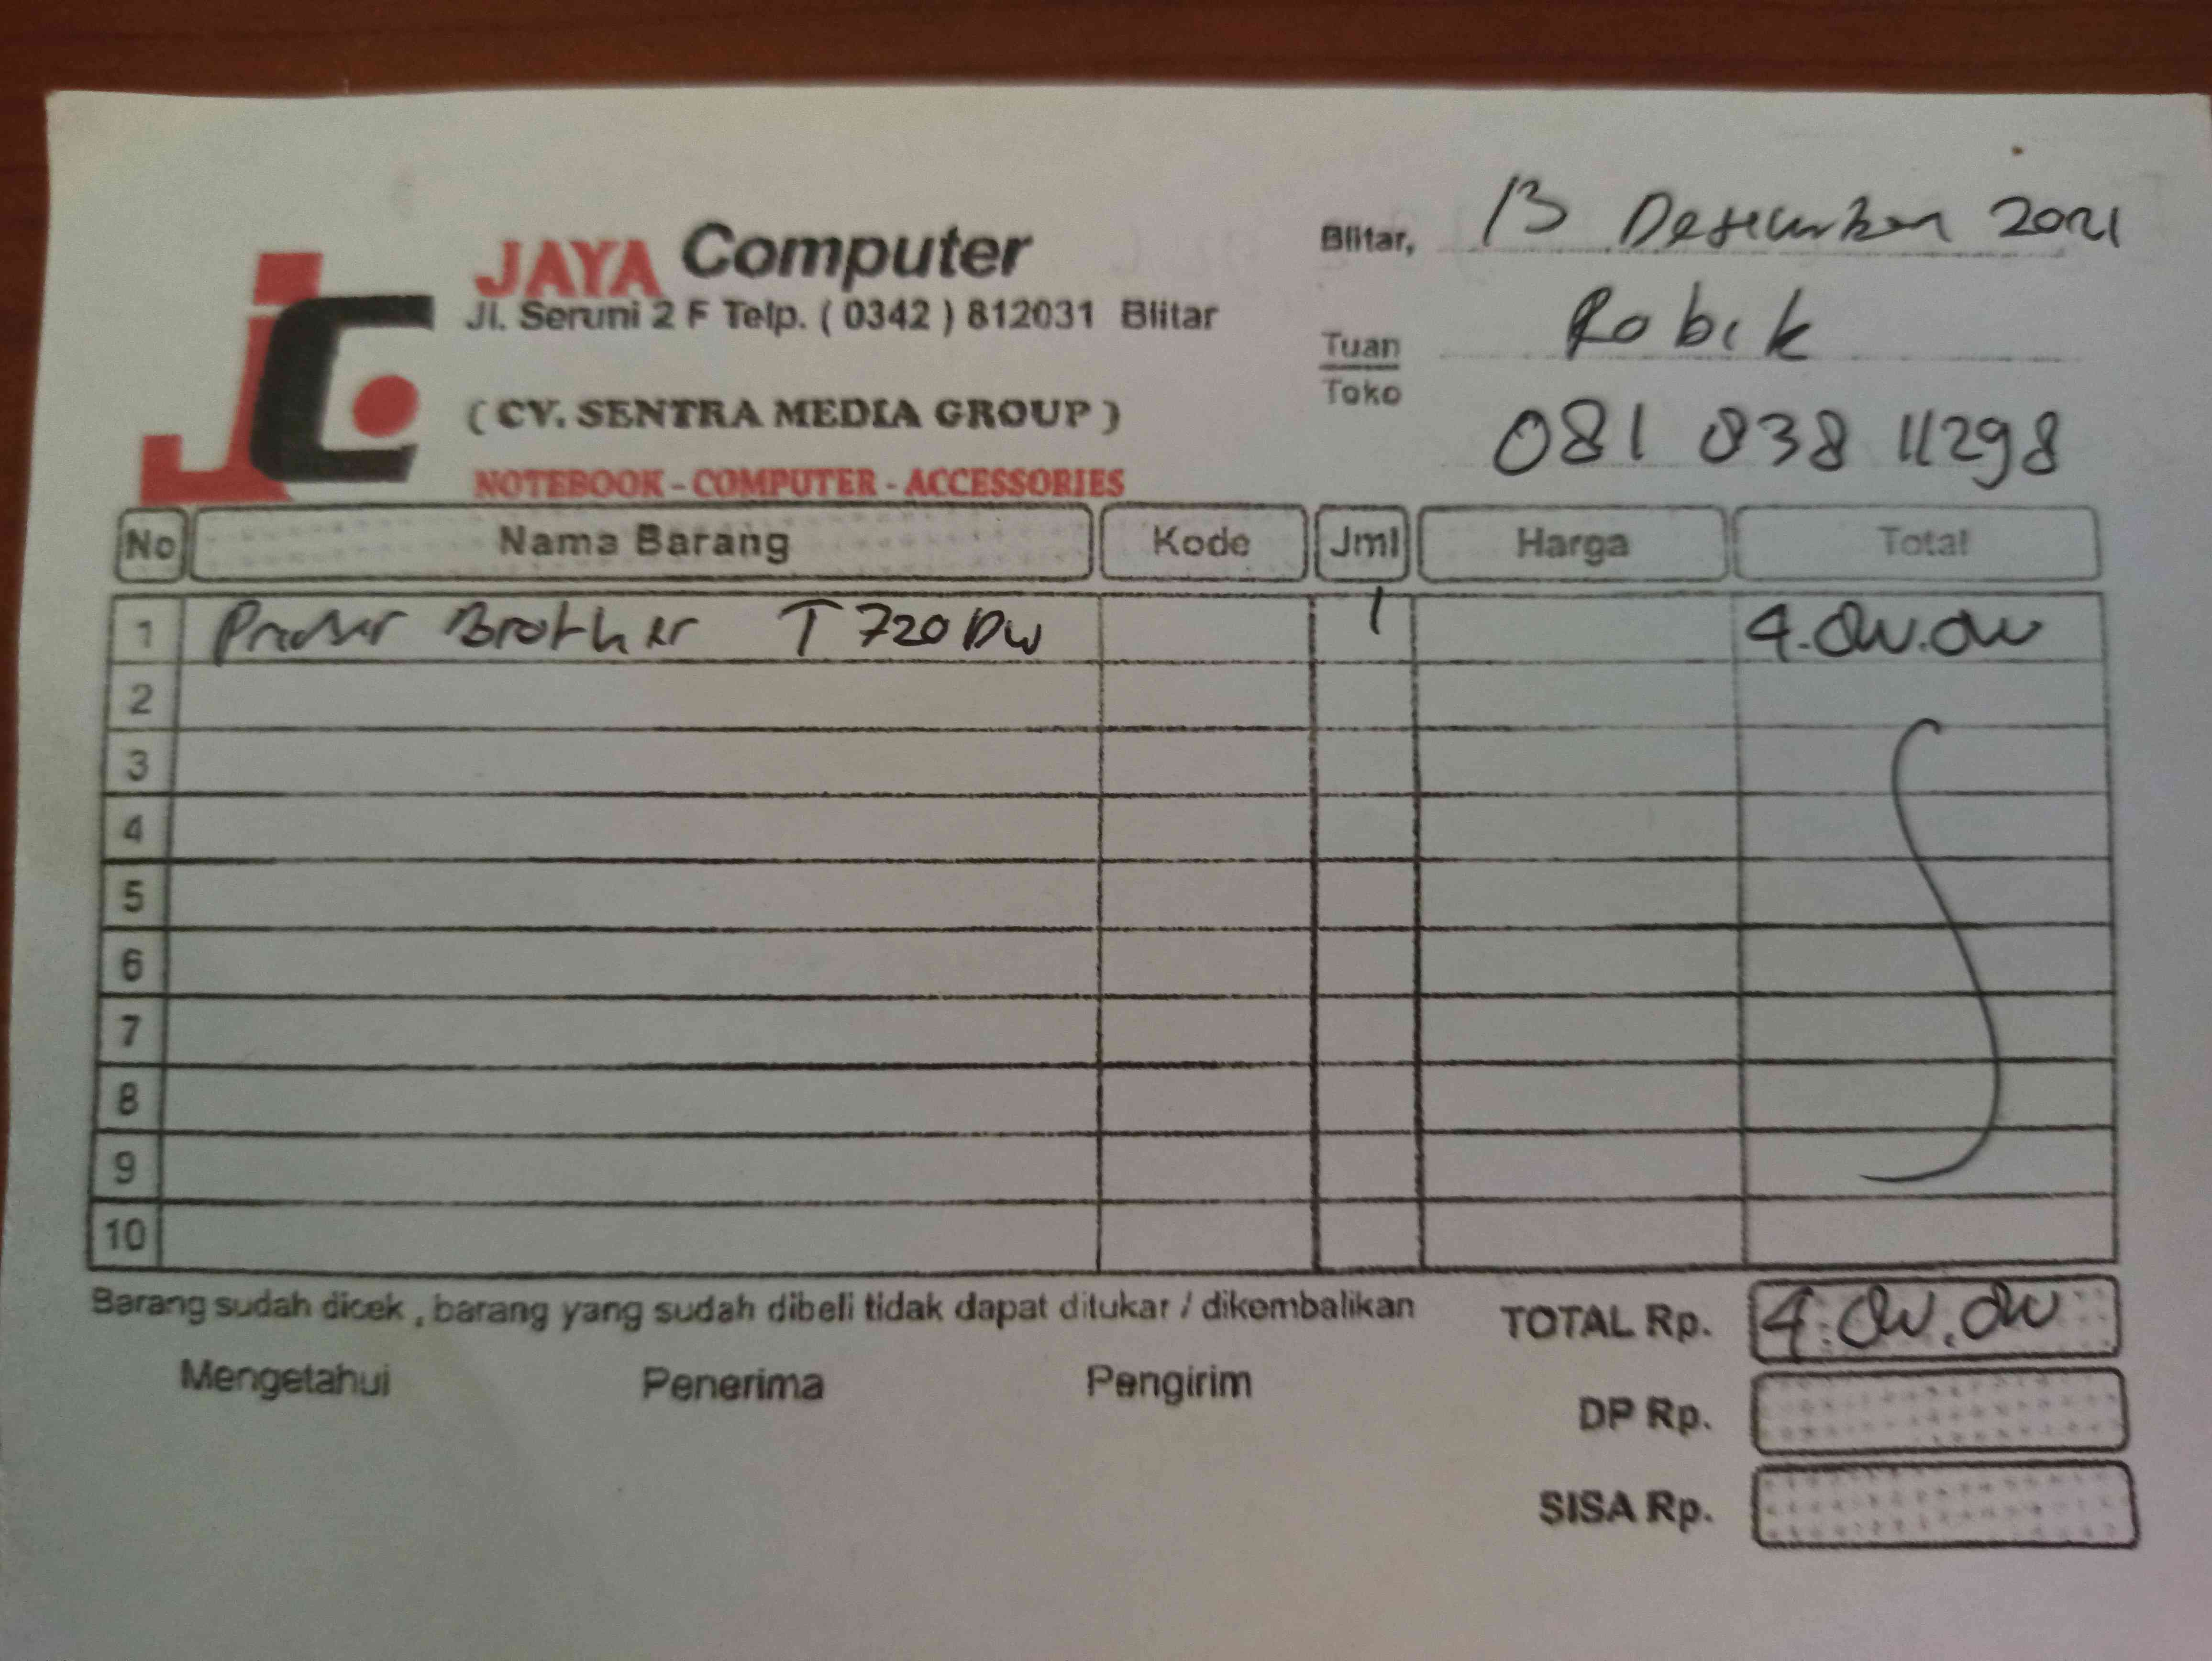 JAYA Computer
Jl. Seruni 2 F Telp. ( 0342 ) 812031 Blitar
( CV. SENTRA MEDIA GROUP )
NOTEBOOK - COMPUTER - ACCESSORIES
Blitar, 13 Desember 2021
Tuan Robik
Toko
081 838 11298
No Nama Barang Kode Jml Harga Total
1 Printer Brother T720DW 1 4.000.000
2
3
4
5
6
7
8
9
10
Barang sudah dicek , barang yang sudah dibeli tidak dapat ditukar / dikembalikan
TOTAL Rp. 4.000.000
Mengetahui Penerima Pengirim
DP Rp.
SISA Rp.